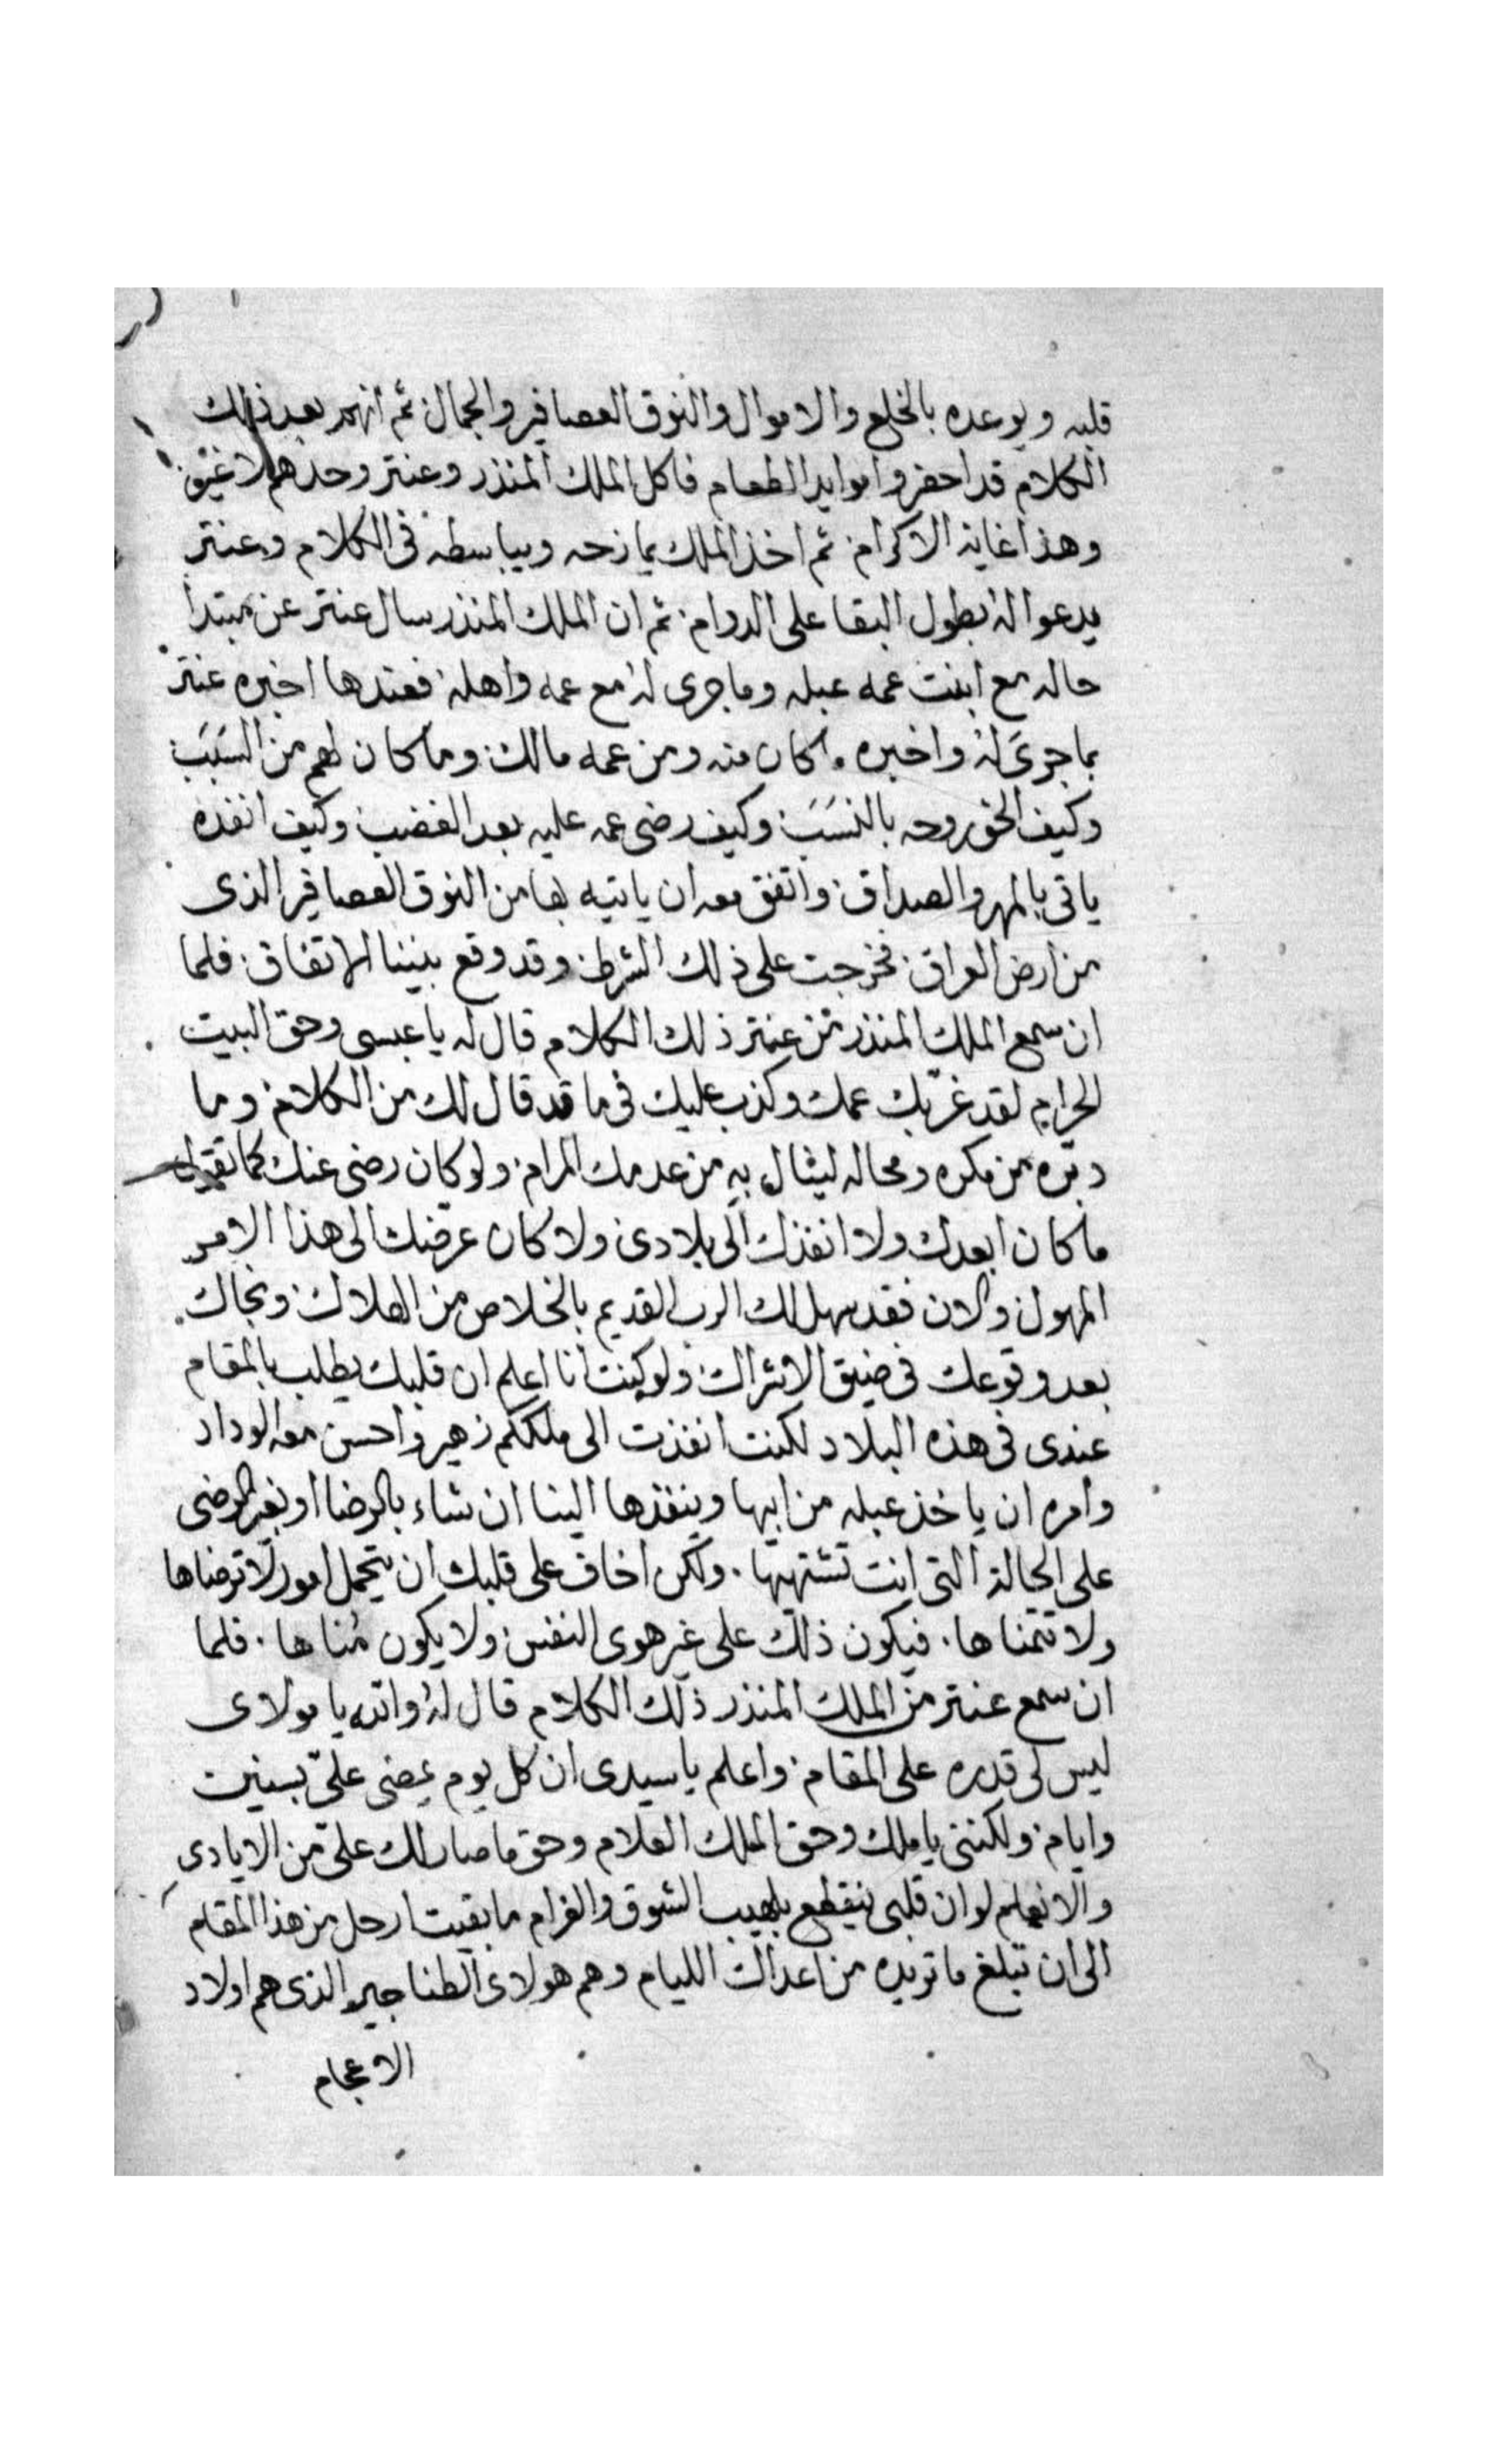 قلبه ويوعده بالخلع والاموال والنوق العصافير والجمال ثم انهم بعد ذلك
الكلام قد احضروا موايد الطعام فاكل الملك المنذر وعنتر وحدهم لا غير
وهذا غاية الاكرام ثم اخذ الملك يمازحه ويباسطه فى الكلام وعنتر
يدعوا له بطول البقا على الدوام ثم ان الملك المنذر سال عنتر عن مبتدا
حاله مع ابنت عمه عبله وما جرى له مع عمه واهله فعندها اخبره عنتر
بما جرى له واخبره ما كان منه ومن عمه مالك وما كان لهم من السبب
وكيف الحق روحه بالنسب وكيف رضى عمه عليه بعد الغضب وكيف انفده
ياتى بالمهر والصداق واتفق معه ان ياتيه بها من النوق العصافير الذى
من ارض العراق فخرجت على ذلك الشرط وقد وقع بيننا الاتفاق فلما
ان سمع الملك المنذر من عنتر ذلك الكلام قال له يا عبسى وحق البيت
الحرام لقد غر بك عمك وكذب عليك فى ما قد قال لك من الكلام وما
دبره من مكره ومحاله لينال به من عدمك المرام ولو كان رضى عنك كما تقول
ما كان ابعدك ولا انفذك الى بلادى ولا كان عرضك الى هذا الامر
المهول والان فقد سهل لك الرب القديم بالخلاص من الهلاك ونجاك
بعد وقوعك فى ضيق الاشراك ولو كنت انا اعلم ان قلبك يطلب بالمقام
عندى فى هذه البلاد لكنت انفذت الى ملككم زهير واحسن معه الوداد
وامره ان ياخذ عبله من ابيها وينفذها الينا ان شاء بالرضا او بغير الرضى
على الحالة التى انت تشتهيها . ولكن اخاف على قلبك ان يتحمل امور لا ترضاها
ولا تتمناها . فيكون ذلك على غير هوى النفس ولا يكون مُناها . فلما
ان سمع عنتر من الملك المنذر ذلك الكلام قال له والله يا مولاى
ليس لى قدره على المقام واعلم يا سيدى ان كل يوم يمضى علىّ بسنين
وايام ولكننى يا ملك وحق الملك العلام وحق ما صار لك علىّ من الايادى
والانعام لو ان قلبى ينقطع بلهيب الشوق والغرام ما بقيت ارحل من هذا المقام
الى ان تبلغ ما تريده من اعداك الليام وهم هولاى الطناجير الذى هم اولاد
الاعجام